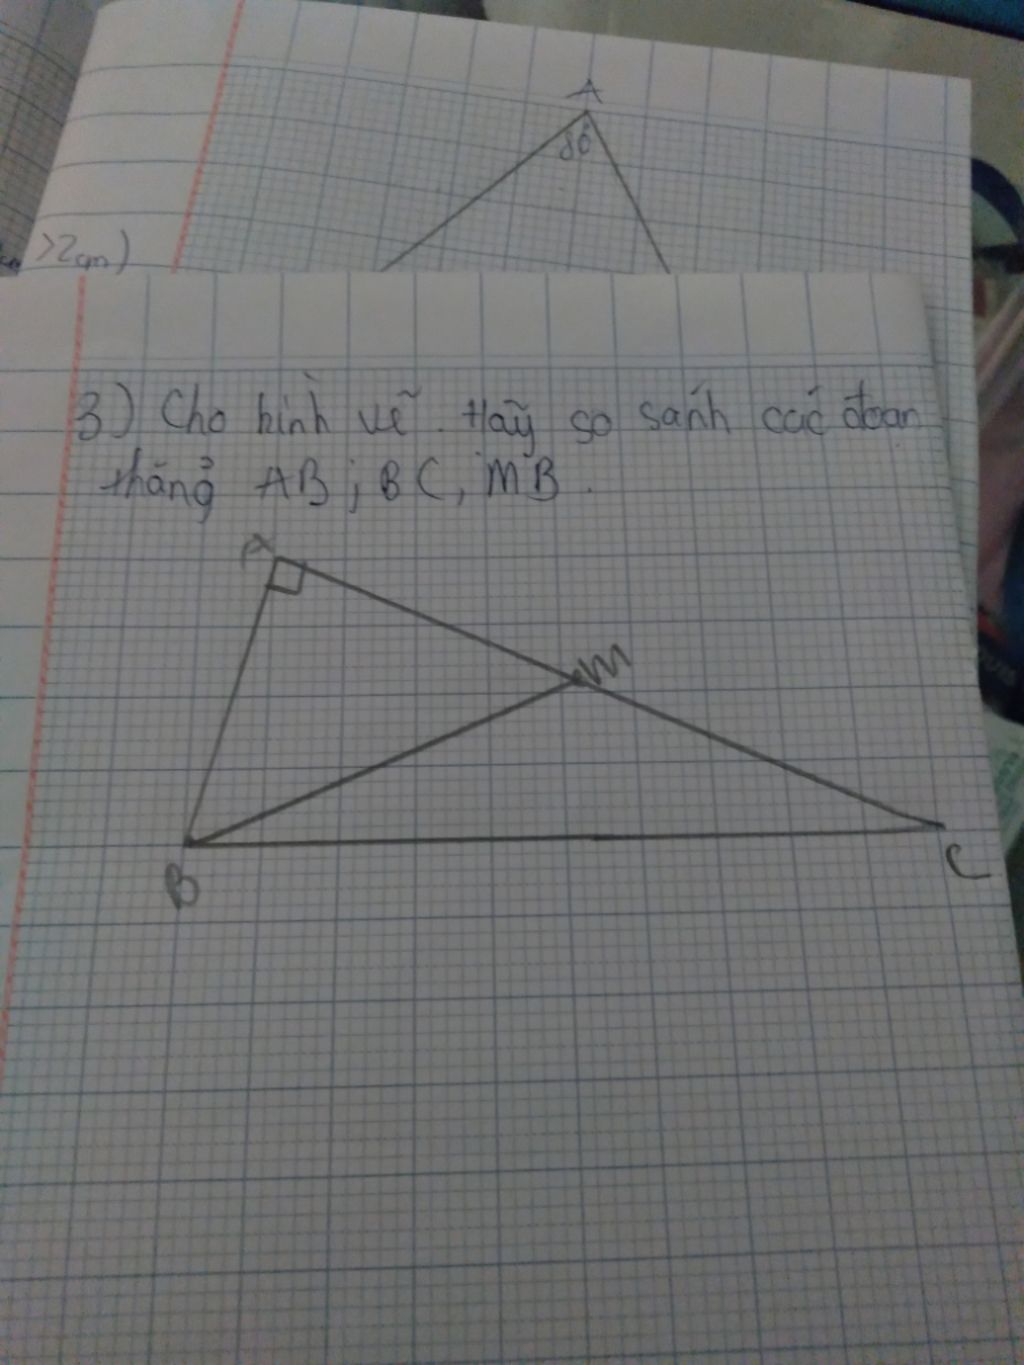 A
80
>2cm)
3) Cho hình vẽ. Hãy so sánh các đoạn
thẳng AB; BC, MB.
A
M
B
C